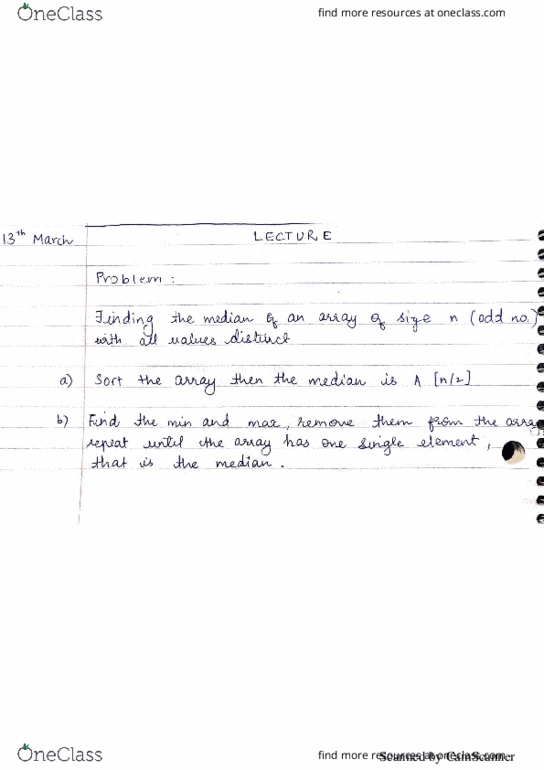 OneClass
find more resources at oneclass.com
13th March
LECTURE
Problem :
Finding the median of an array of size n (odd no.)
with all values distinct
a) Sort the array then the median is A [n/2]
b) Find the min and max, remove them from the array
repeat until the array has one single element,
that is the median.
OneClass
find more resources at oneclass.com
Scanned by CamScanner